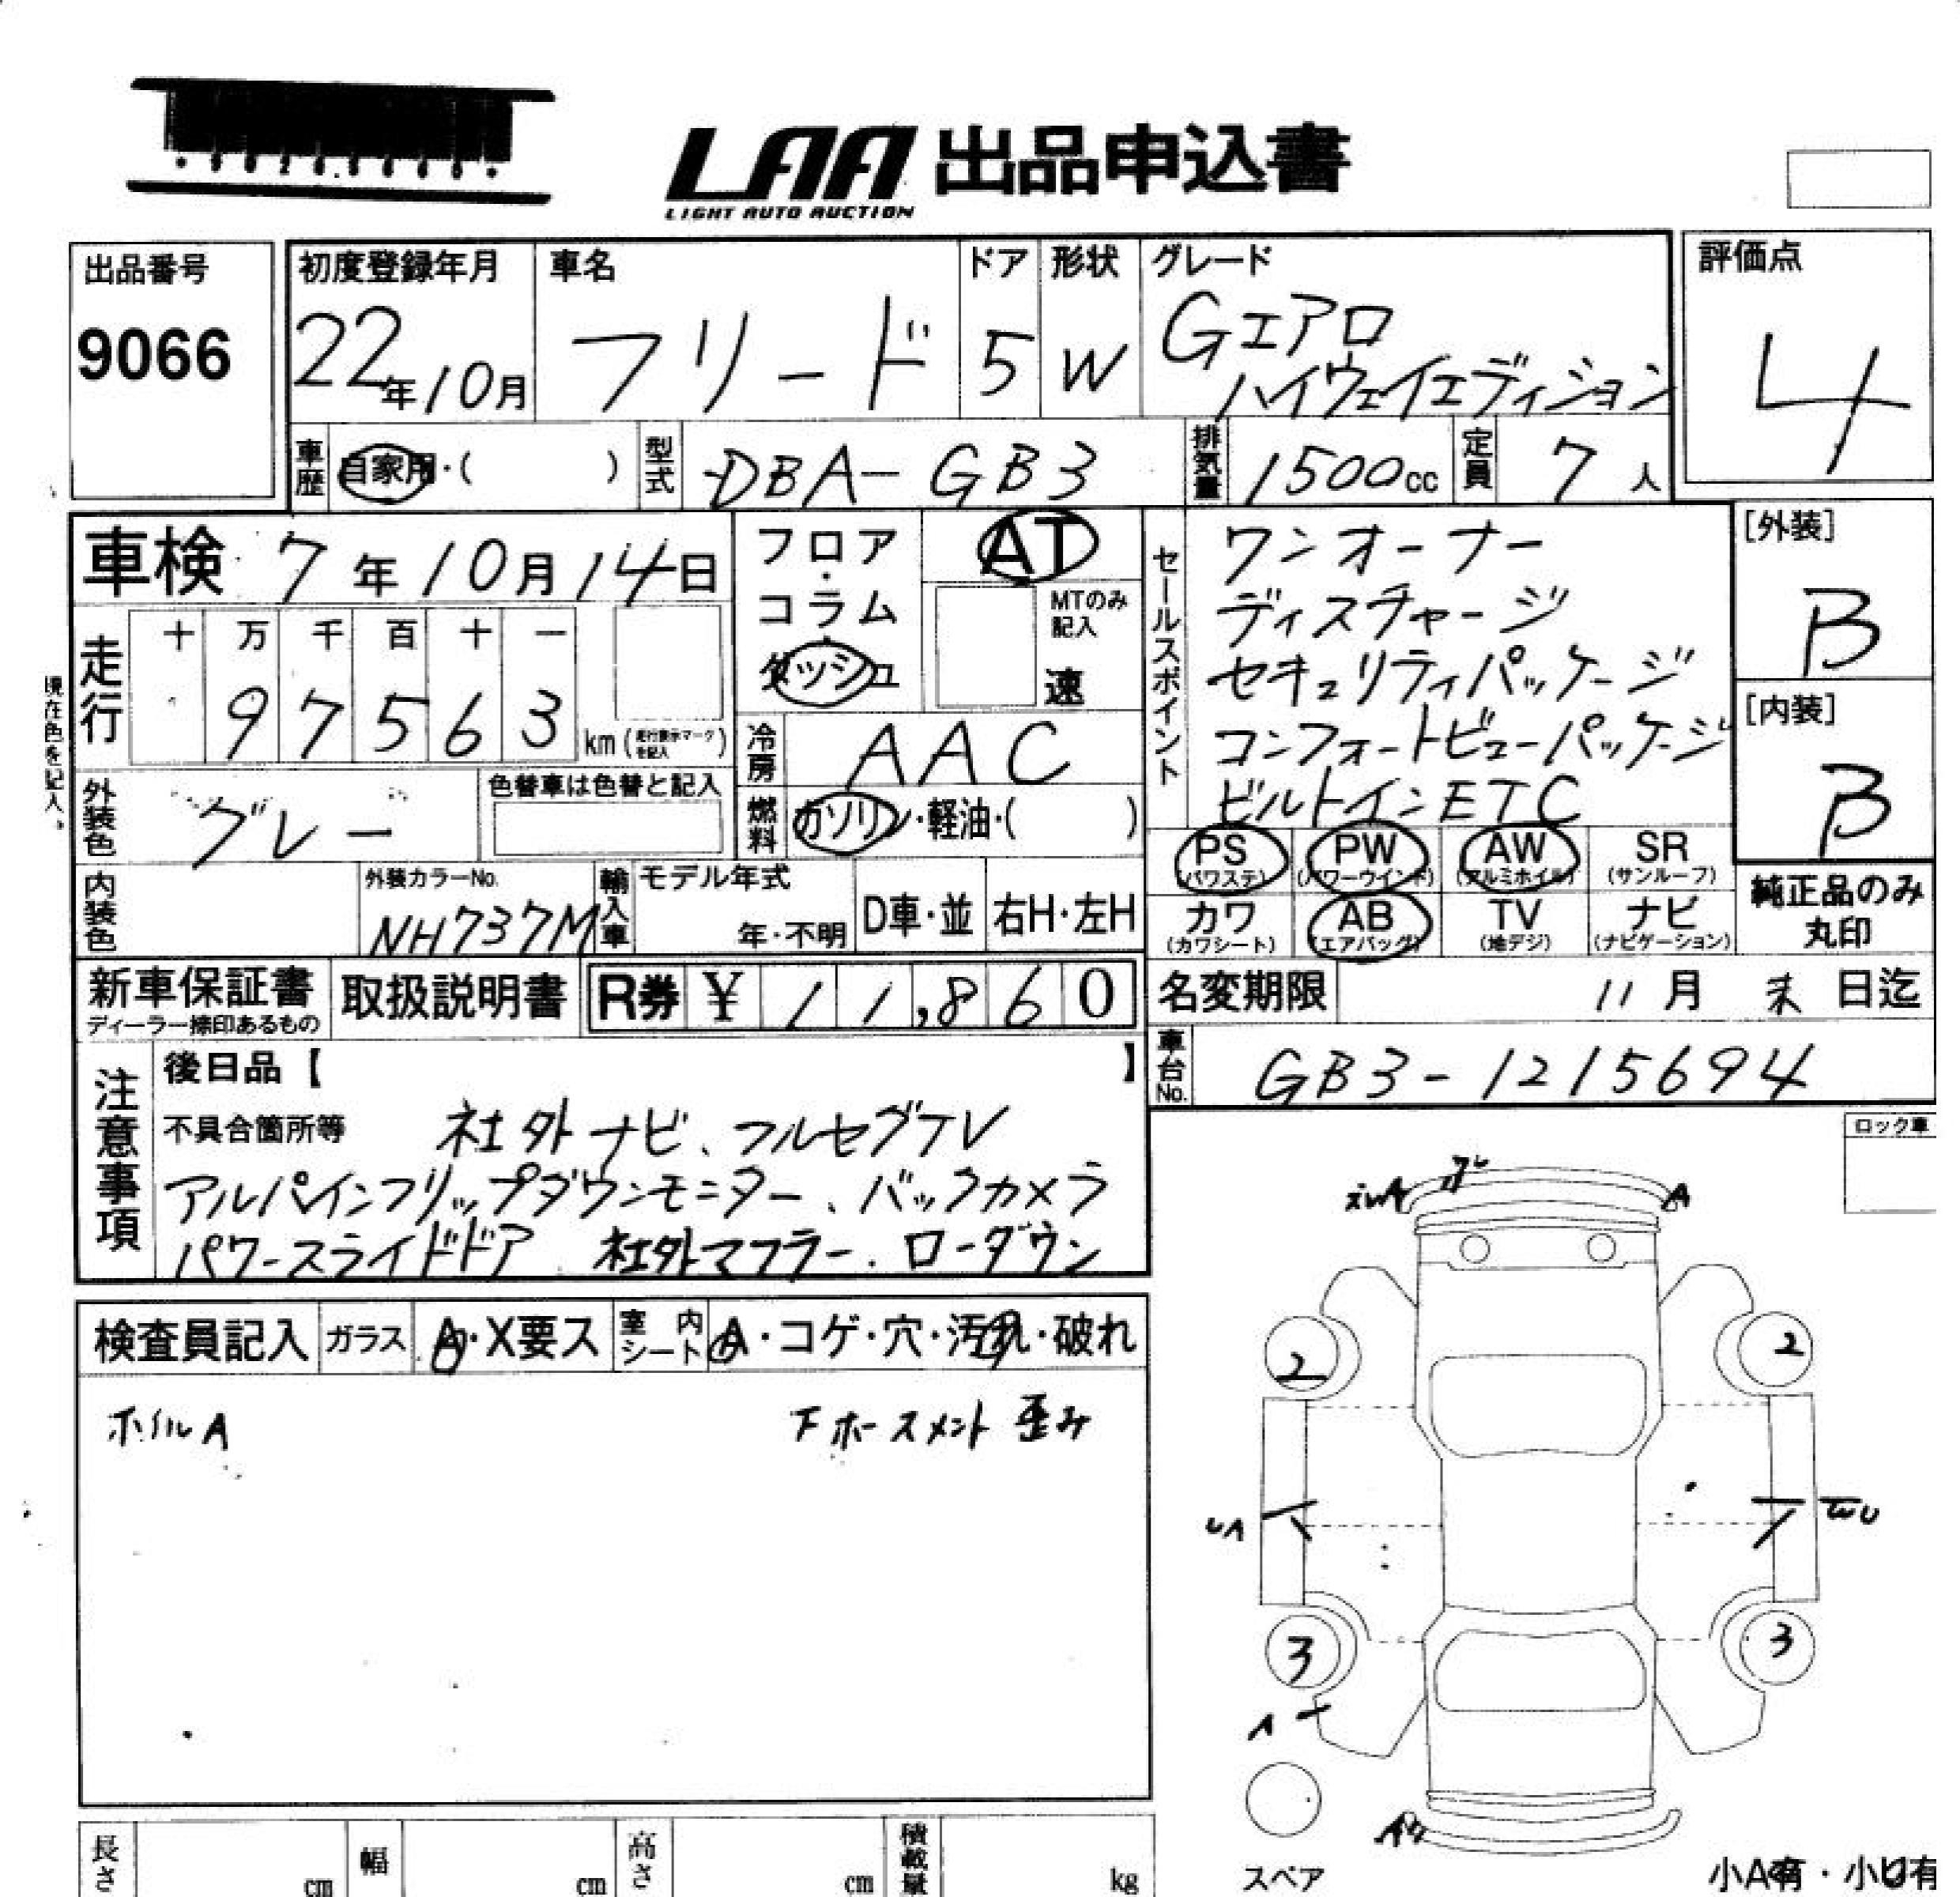 LAA 出品申込書
LIGHT AUTO AUCTION
出品番号
9066
初度登録年月
22年10月
車名
フリード
ドア
5
形状
W
グレード
Gエアロ
ハイウェイエディション
評価点
4
車歴 自家用・( )
型式 DBA-GB3
排気量 1500cc
定員 7人
車検 7年10月14日
フロア・コラム・ダッシュ
AT
MTのみ記入
速
セールスポイント
ワンオーナー
ディスチャージ
セキュリティパッケージ
コンフォートビューパッケージ
ビルトインETC
[外装]
B
[内装]
B
走行
十 万 千 百 十 一
9 7 5 6 3 km (走行表示マークを記入)
現在色を記入。
冷房 AAC
外装色 グレー
色替車は色替と記入
燃料 ガソリン・軽油・( )
PS (パワステ) PW (パワーウインド) AW (アルミホイル) SR (サンルーフ)
カワ (カワシート) AB (エアバッグ) TV (地デジ) ナビ (ナビゲーション)
純正品のみ丸印
内装色
外装カラーNo.
NH737M
輸入車
モデル年式
年・不明
D車・並
右H・左H
新車保証書
ディーラー捺印あるもの
取扱説明書
R券 ¥ 11,860
名変期限 11月 末 日迄
車台No. GB3-1215694
注意事項
後日品【 】
不具合箇所等 社外ナビ、フルセグTV
アルパインフリップダウンモニター、バックカメラ
パワースライドドア 社外マフラー、ローダウン
ロック車
検査員記入
ガラス A・X要ス
室内シート A・コゲ・穴・汚れ・破れ
ホイルA
Fホースメント 歪み
A
2
2
UA
3
3
A
スペア
小A有・小U有
長さ cm
幅 cm
高さ cm
積載量 kg